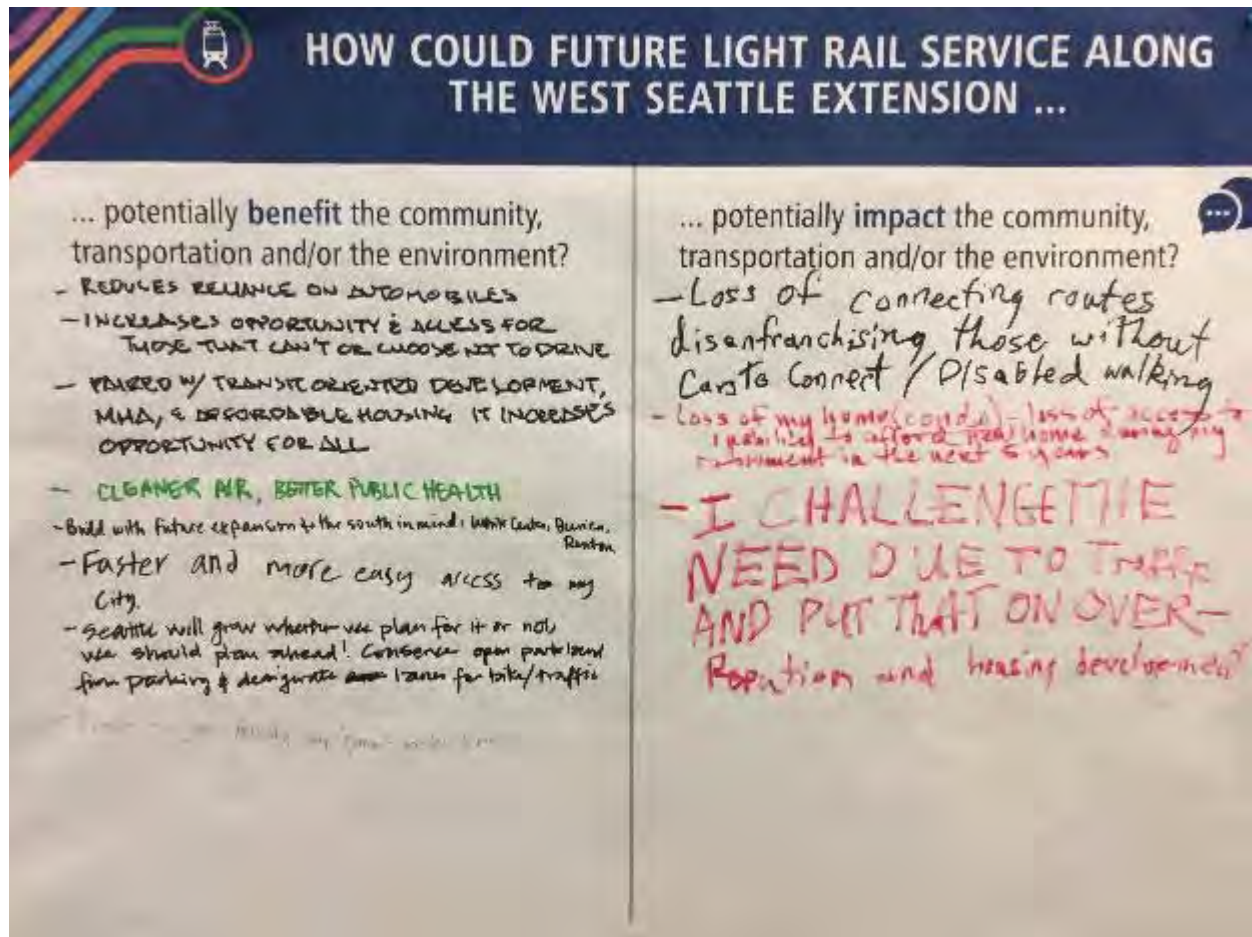 HOW COULD FUTURE LIGHT RAIL SERVICE ALONG
THE WEST SEATTLE EXTENSION ...
... potentially benefit the community,
transportation and/or the environment?
- REDUCES RELIANCE ON AUTOMOBILES
- INCREASES OPPORTUNITY & ACCESS FOR
THOSE THAT CAN'T OR CHOOSE NOT TO DRIVE
- PAIRED W/ TRANSIT ORIENTED DEVELOPMENT,
MHA, & AFFORDABLE HOUSING IT INCREASES
OPPORTUNITY FOR ALL
- CLEANER AIR, BETTER PUBLIC HEALTH
- Build with future expansion to the south in mind: White Center, Burien,
Renton
- Faster and more easy access to my
City.
- Seattle will grow whether we plan for it or not
we should plan ahead! Conserve open park land
from parking & designate lanes for bike/traffic
... potentially impact the community,
transportation and/or the environment?
- Loss of connecting routes
disenfranchising those without
Cars To Connect / Disabled walking
- Loss of my home (condo) - loss of access to
to afford home during my
retirement in the next 5 years
- I CHALLENGE THE
NEED DUE TO TRAFFIC
AND PUT THAT ON OVER-
Population and housing development